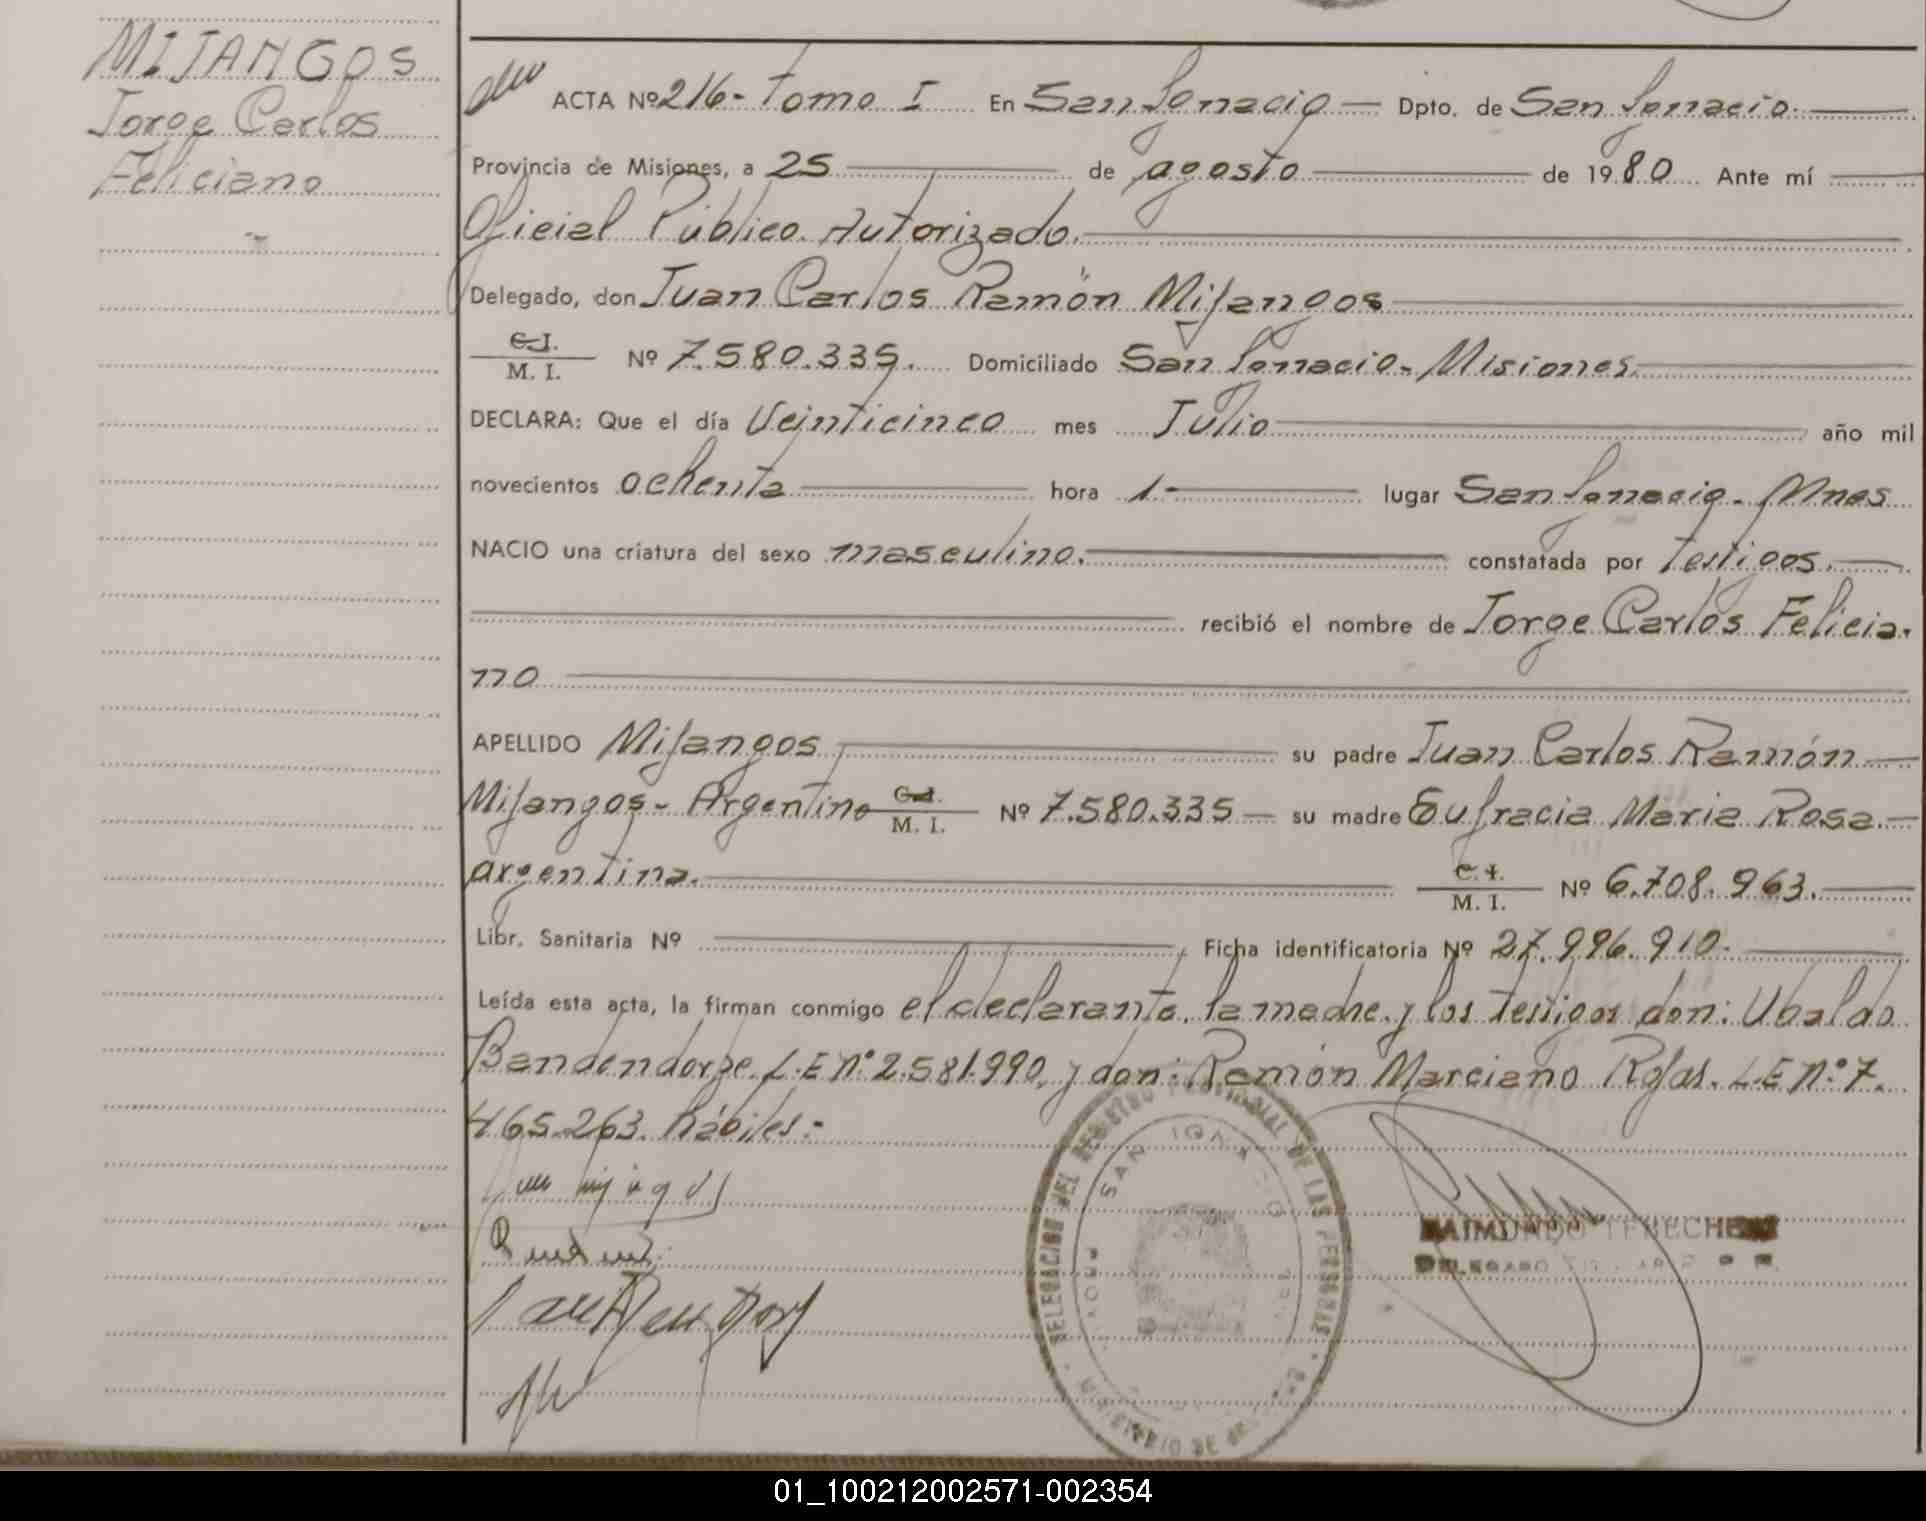 MIJANGOS
Jorge Carlos
Feliciano
ACTA Nº 216- Tomo I En San Ignacio — Dpto. de San Ignacio.
Provincia de Misiones, a 25 de agosto de 1980 Ante mí
Oficial Público Autorizado.
Delegado, don Juan Carlos Ramón Mijangos
C.I.
M. I. Nº 7.580.335. Domiciliado San Ignacio - Misiones.
DECLARA: Que el día Veinticinco mes Julio año mil
novecientos ochenta hora 1.- lugar San Ignacio - Mnes
NACIO una criatura del sexo masculino. constatada por testigos.
recibió el nombre de Jorge Carlos Felicia-
no
APELLIDO Mijangos su padre Juan Carlos Ramón
Mijangos - Argentino C.I. M. I. Nº 7.580.335 — su madre Eufracia Maria Rosa.
argentina. C. I. M. I. Nº 6.708.963.
Libr. Sanitaria Nº Ficha identificatoria Nº 27.996.910.
Leída esta acta, la firman conmigo el declarante, la madre y los testigos don: Ubaldo
Bandendorpe L.E nº 2.581.990, y don: Ramón Marciano Rojas. L.E nº 7.
465.263. hábiles:-
DELEGACION DEL REGISTRO PROVINCIAL DE LAS PERSONAS
SAN IGNACIO
PROV.
MINISTERIO DE
RAIMUNDO
DELEGADO TITULAR
01_100212002571-002354